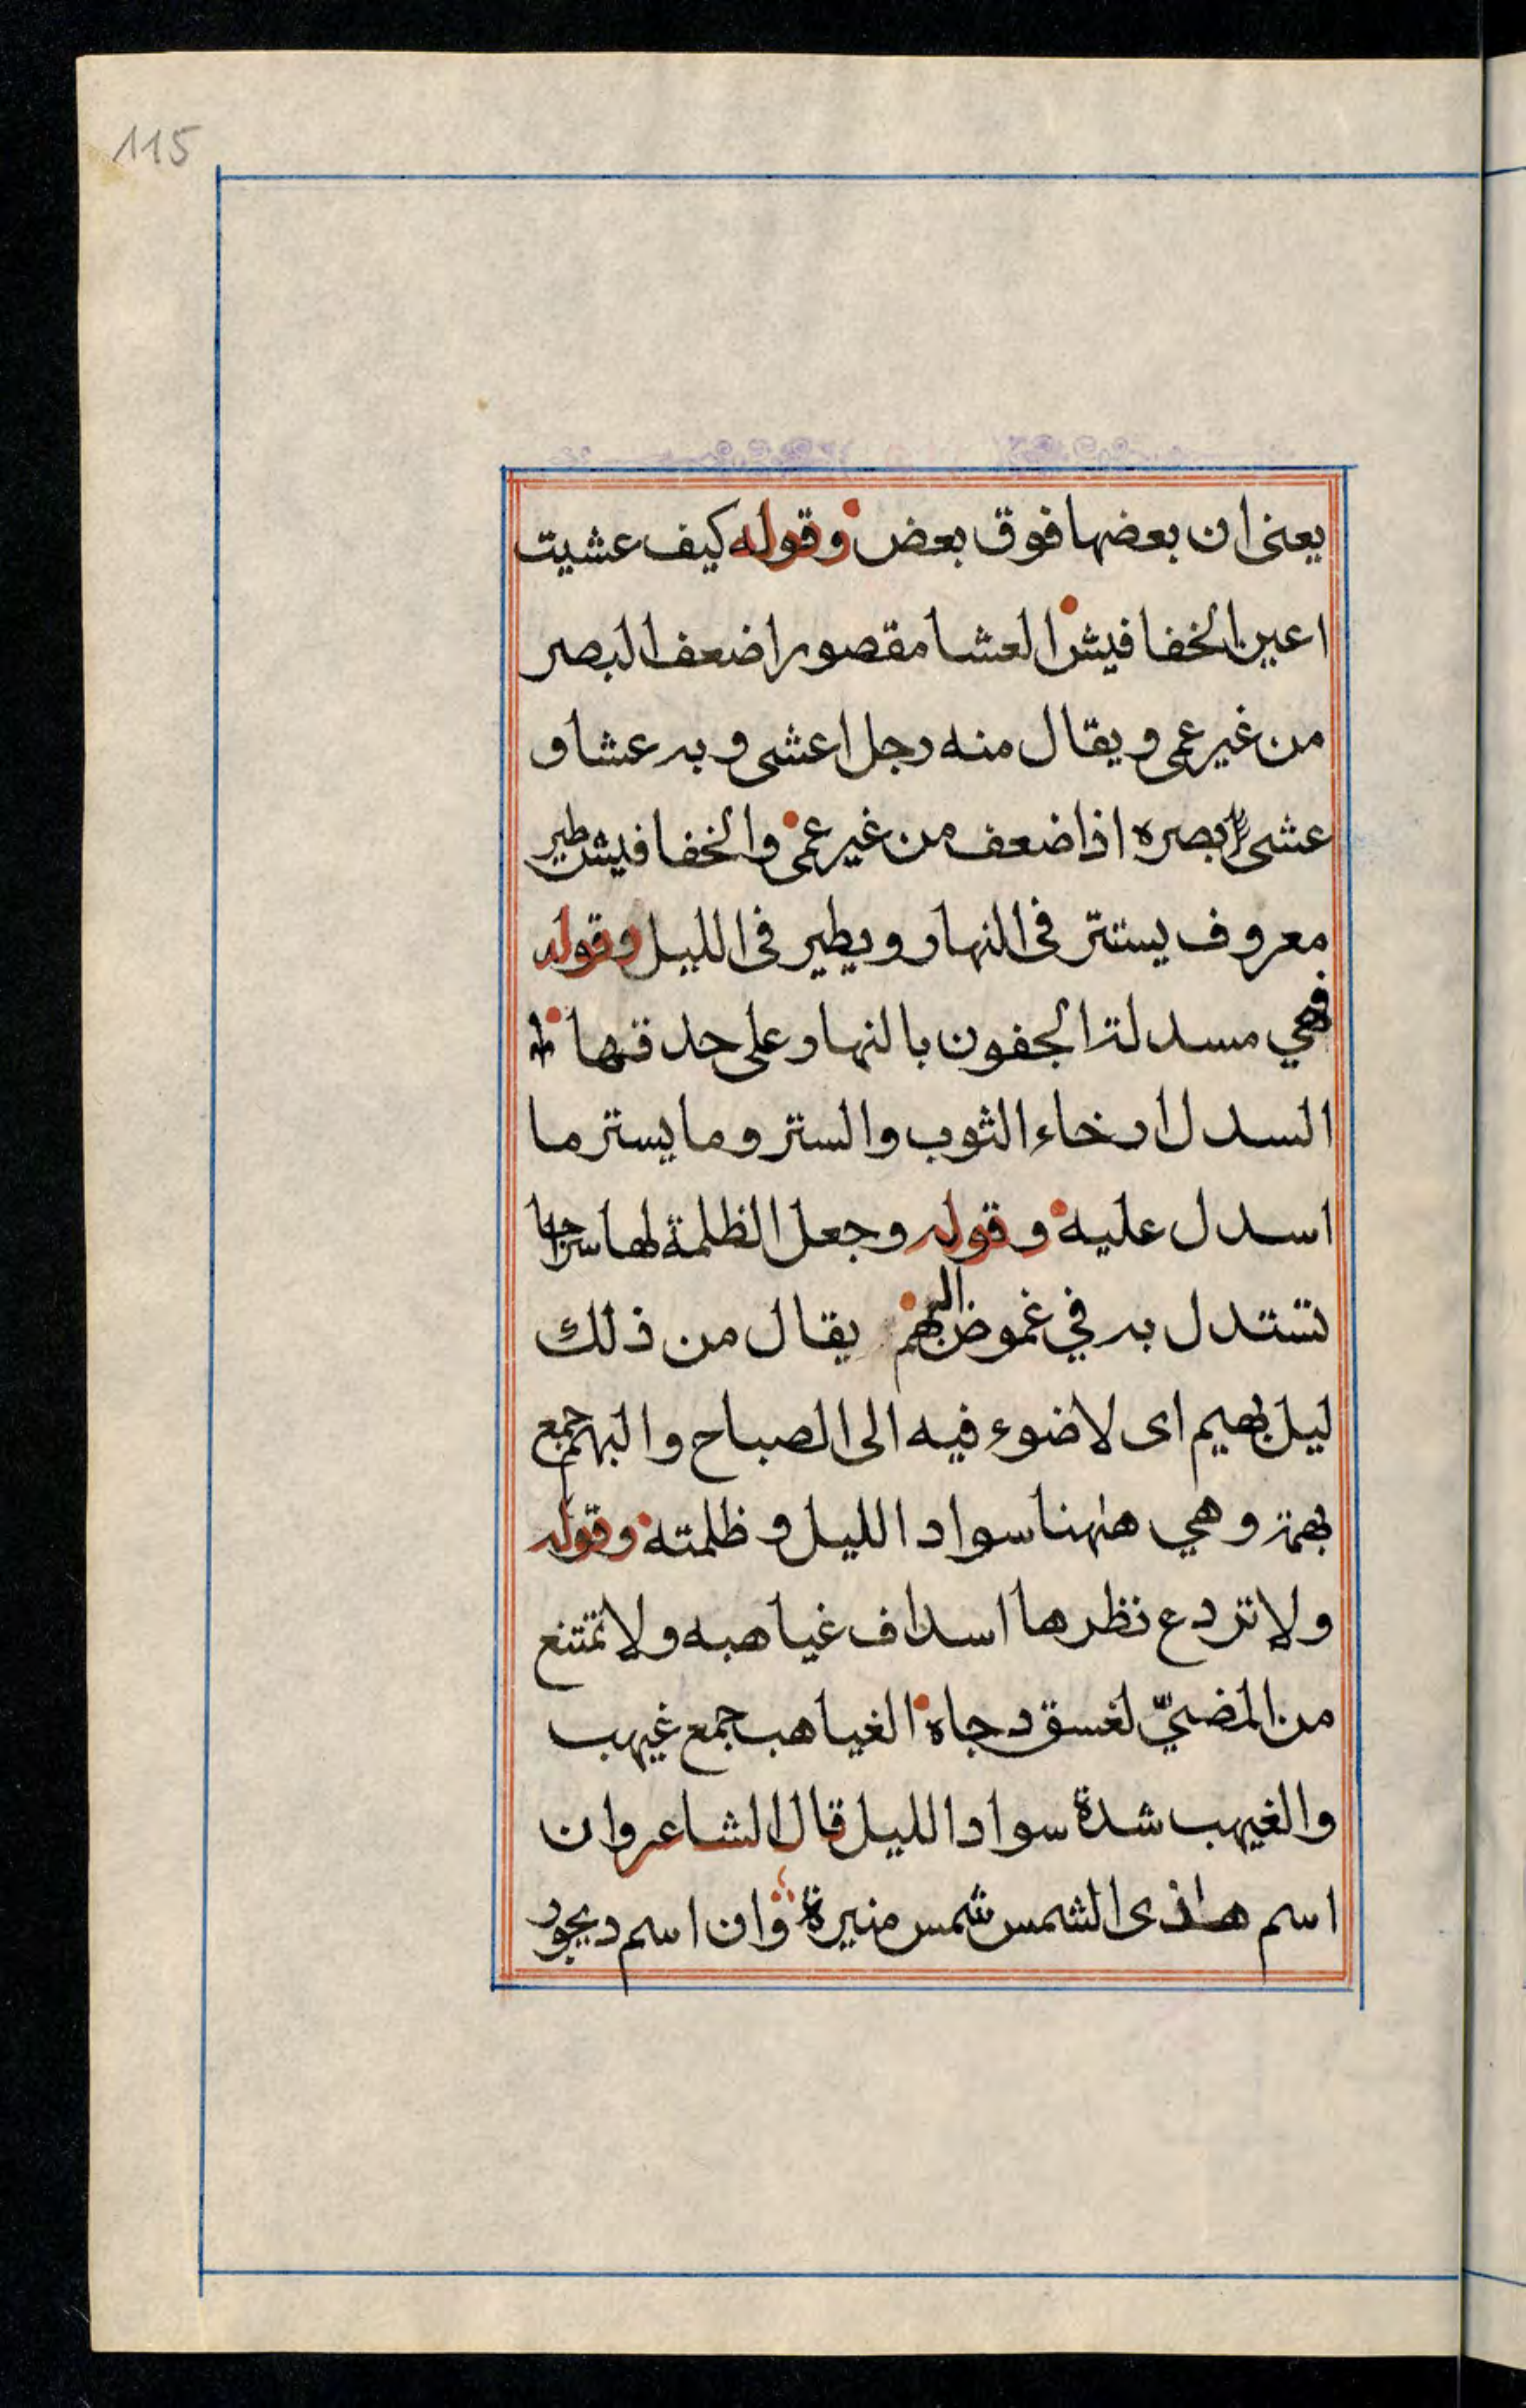 115
يعنى ان بعضها فوق بعض وقوله كيف عشيت
اعين الخفافيش العشا مقصورا ضعف البصر
من غير عمى ويقال منه رجل اعشى وبه عشا و
عشى بصره اذا ضعف من غير عمى والخفافيش طير
معروف يستتر فى النهار ويطير فى الليل وقوله
فهي مسدلة الجفون بالنهار على حدقها
السدل ارخاء الثوب والستر وما يستر ما
اسدل عليه وقوله وجعل الظلمة لها سراجا
تستدل به في غموض البهم يقال من ذلك
ليل بهيم اى لا ضوء فيه الى الصباح والبهم جمع
بهمة وهي هٰهنا سواد الليل وظلمته وقوله
ولا تردع نظرها اسداف غياهبه ولا تمتنع
من المضيّ لغسق دجاه الغياهب جمع غيهب
والغيهب شدة سواد الليل قال الشاعر وان
اسم هاذى الشمس شمس منيرة وان اسم ديجور